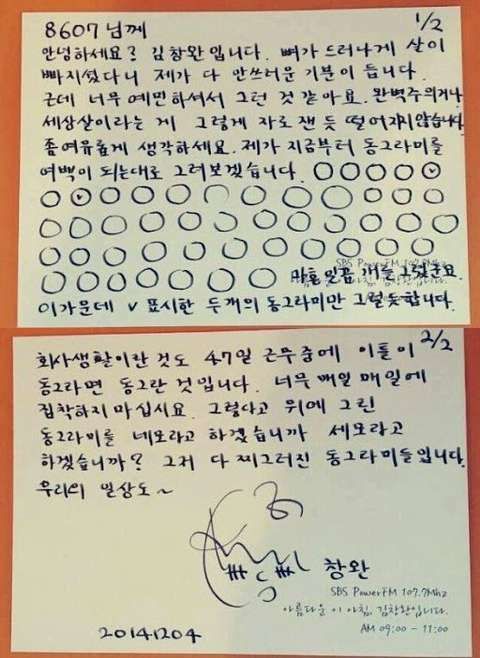 8607님께 1/2
안녕하세요? 김창완입니다. 뼈가 드러나게 살이
빠지셨다니 제가 다 안쓰러운 기분이 듭니다.
근데 너무 예민하셔서 그런 것 같아요. 완벽주의거나
세상살이라는 게 그렇게 자로 잰 듯 떨어지지않습니다
좀 여유롭게 생각하세요. 제가 지금부터 동그라미를
여백이 되는대로 그려보겠습니다.
SBS PowerFM 107.7Mhz
마흔 일곱 개를 그렸군요.
이 가운데 v 표시한 두개의 동그라미만 그럴듯합니다.
회사생활이란 것도 47일 근무 중에 이틀이 2/2
동그라면 동그란 것입니다. 너무 매일 매일에
집착하지 마십시요. 그렇다고 위에 그린
동그라미를 네모라고 하겠습니까 세모라고
하겠습니까? 그저 다 찌그러진 동그라미들입니다.
우리의 일상도~
창완
SBS PowerFM 107.7Mhz
아름다운 이 아침, 김창완입니다.
AM 09:00 - 11:00
20141204